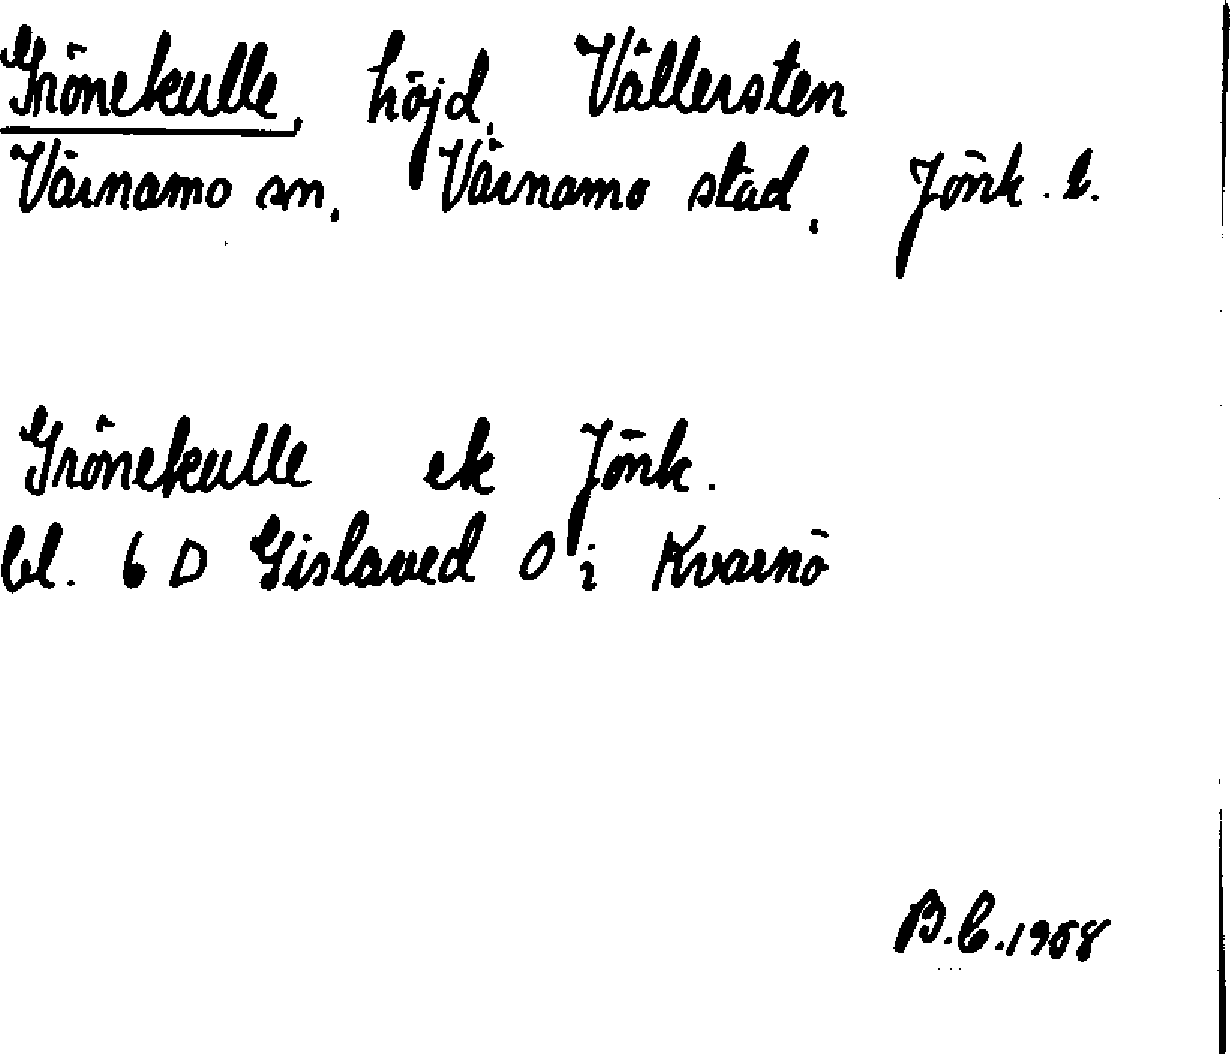 Grönekulle, höjd, Vällersten
Värnamo sn, Värnamo stad, Jönk. l.
Grönekulle ek Jönk.
bl. 6 D Gislaved 0 i Kvarnö
B.C. 1958